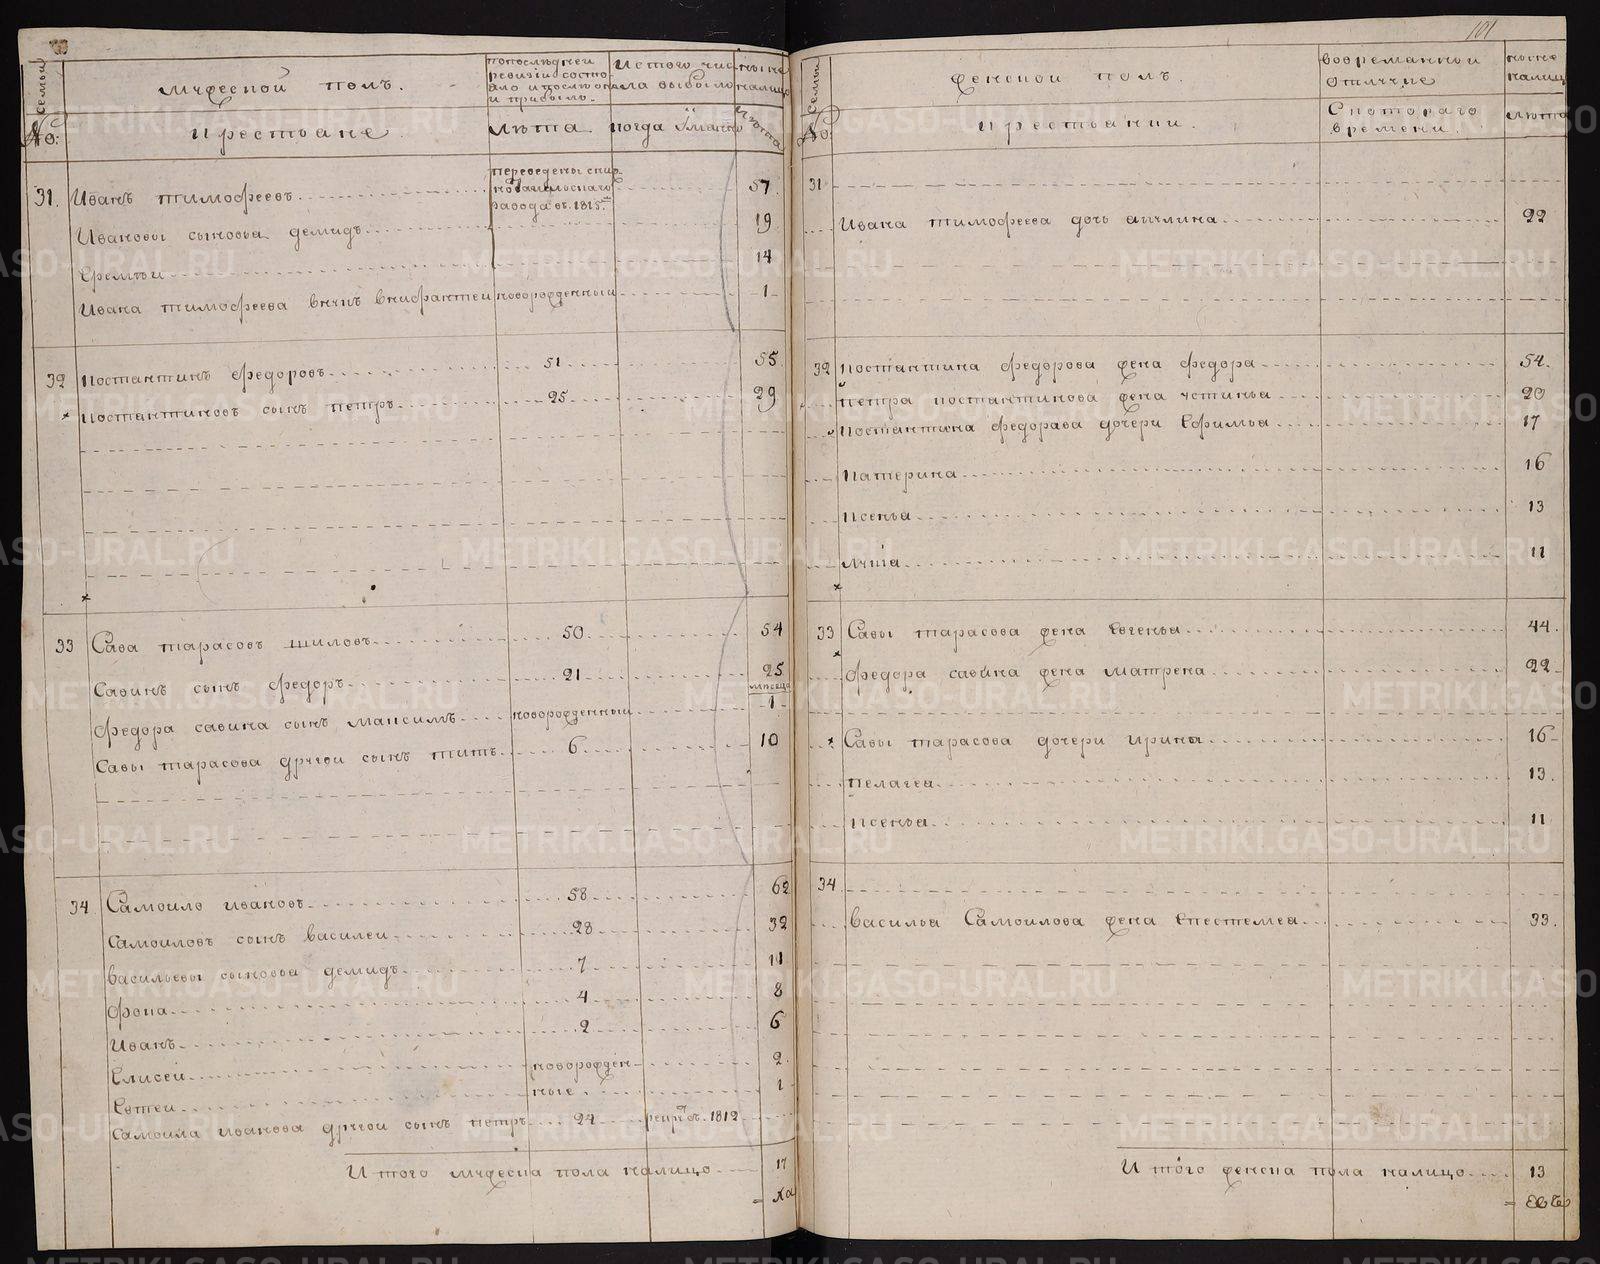 101
семьи
№:
мужеской полъ.
крестьяне.
попоследней ревизіи состояло и после оной прибыло.
лета
изтого числа выбыло
когда Имянно
ныне налицо
лета
31. Иванъ тимофеевъ
переведены
завода въ. 1815.
57.
Ивановы сыновья демидъ 19
Еремеи 14
Ивана тимофеева внукъ внифантеи новорожденный 1
32 костантинъ федоровъ 51 55
костантиновъ сынъ петръ 25 29
33 Сава тарасовъ шиловъ 50 54
Савинъ сынъ федоръ 21 25
месяца
федора савина сынъ максимъ новорожденный 1
Савы тарасова другои сынъ титъ 6 10
34 Самоило ивановъ 58 62
Самоиловъ сынъ василеи 28 32
васильевы сыновья демидъ 7 11
фока 4 8
Иванъ 2 6
Елисеи новорожден 2
Евтеи ные 1
Самоила иванова другои сынъ петръ 24 рекрутъ. 1812
И того мужеска пола налицо 17
семьи
№:
женской полъ.
крестьянки.
вовременнои отлучке
Скотораго времени.
ныне налицо
лета
31
Ивана тимофеева дочь акулина 22
32 костантина федорова жена федора 54.
петра костантинова жена устинья 20
костантина федорава дочери Ефимья 17
катерина 16
ксенья 13
лукia 11
33 Савы тарасова жена Евгенья 44.
федора савина жена матрена 22
Савы тарасова дочери ирина 16
пелагея 13.
ксенья 11
34.
васильа Самоилова жена Епестемеа 33.
И того женска пола налицо 13